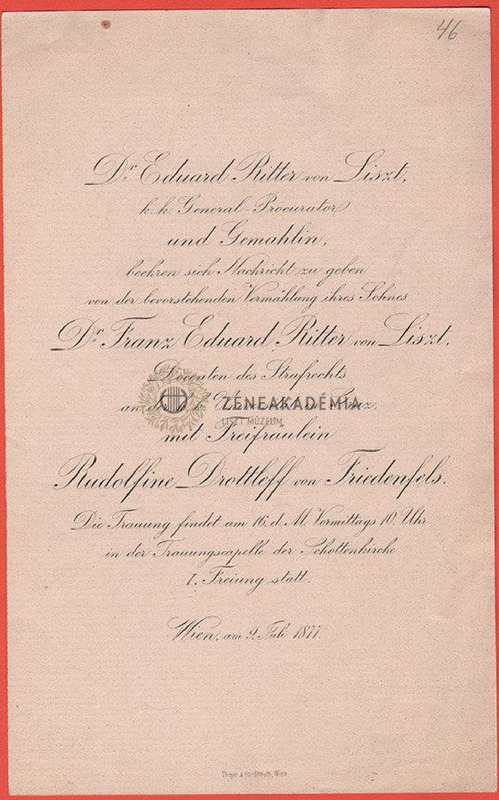 46
Dr Eduard Ritter von Liszt,
k. k. General-Procurator
und Gemahlin,
beehren sich Nachricht zu geben
von der bevorstehenden Vermählung ihres Sohnes
Dr. Franz Eduard Ritter von Liszt,
Docenten des Strafrechts
an der k. k.
ZENEAKADÉMIA
LISZT MÚZEUM
mit Freifraulein
Rudolfine Drottleff von Friedenfels.
Die Trauung findet am 16. d. M. Vormittags 10. Uhr
in der Trauungscapelle der Schottenkirche
I. Freiung statt.
Wien, am 9. Juli 1877.
Wien